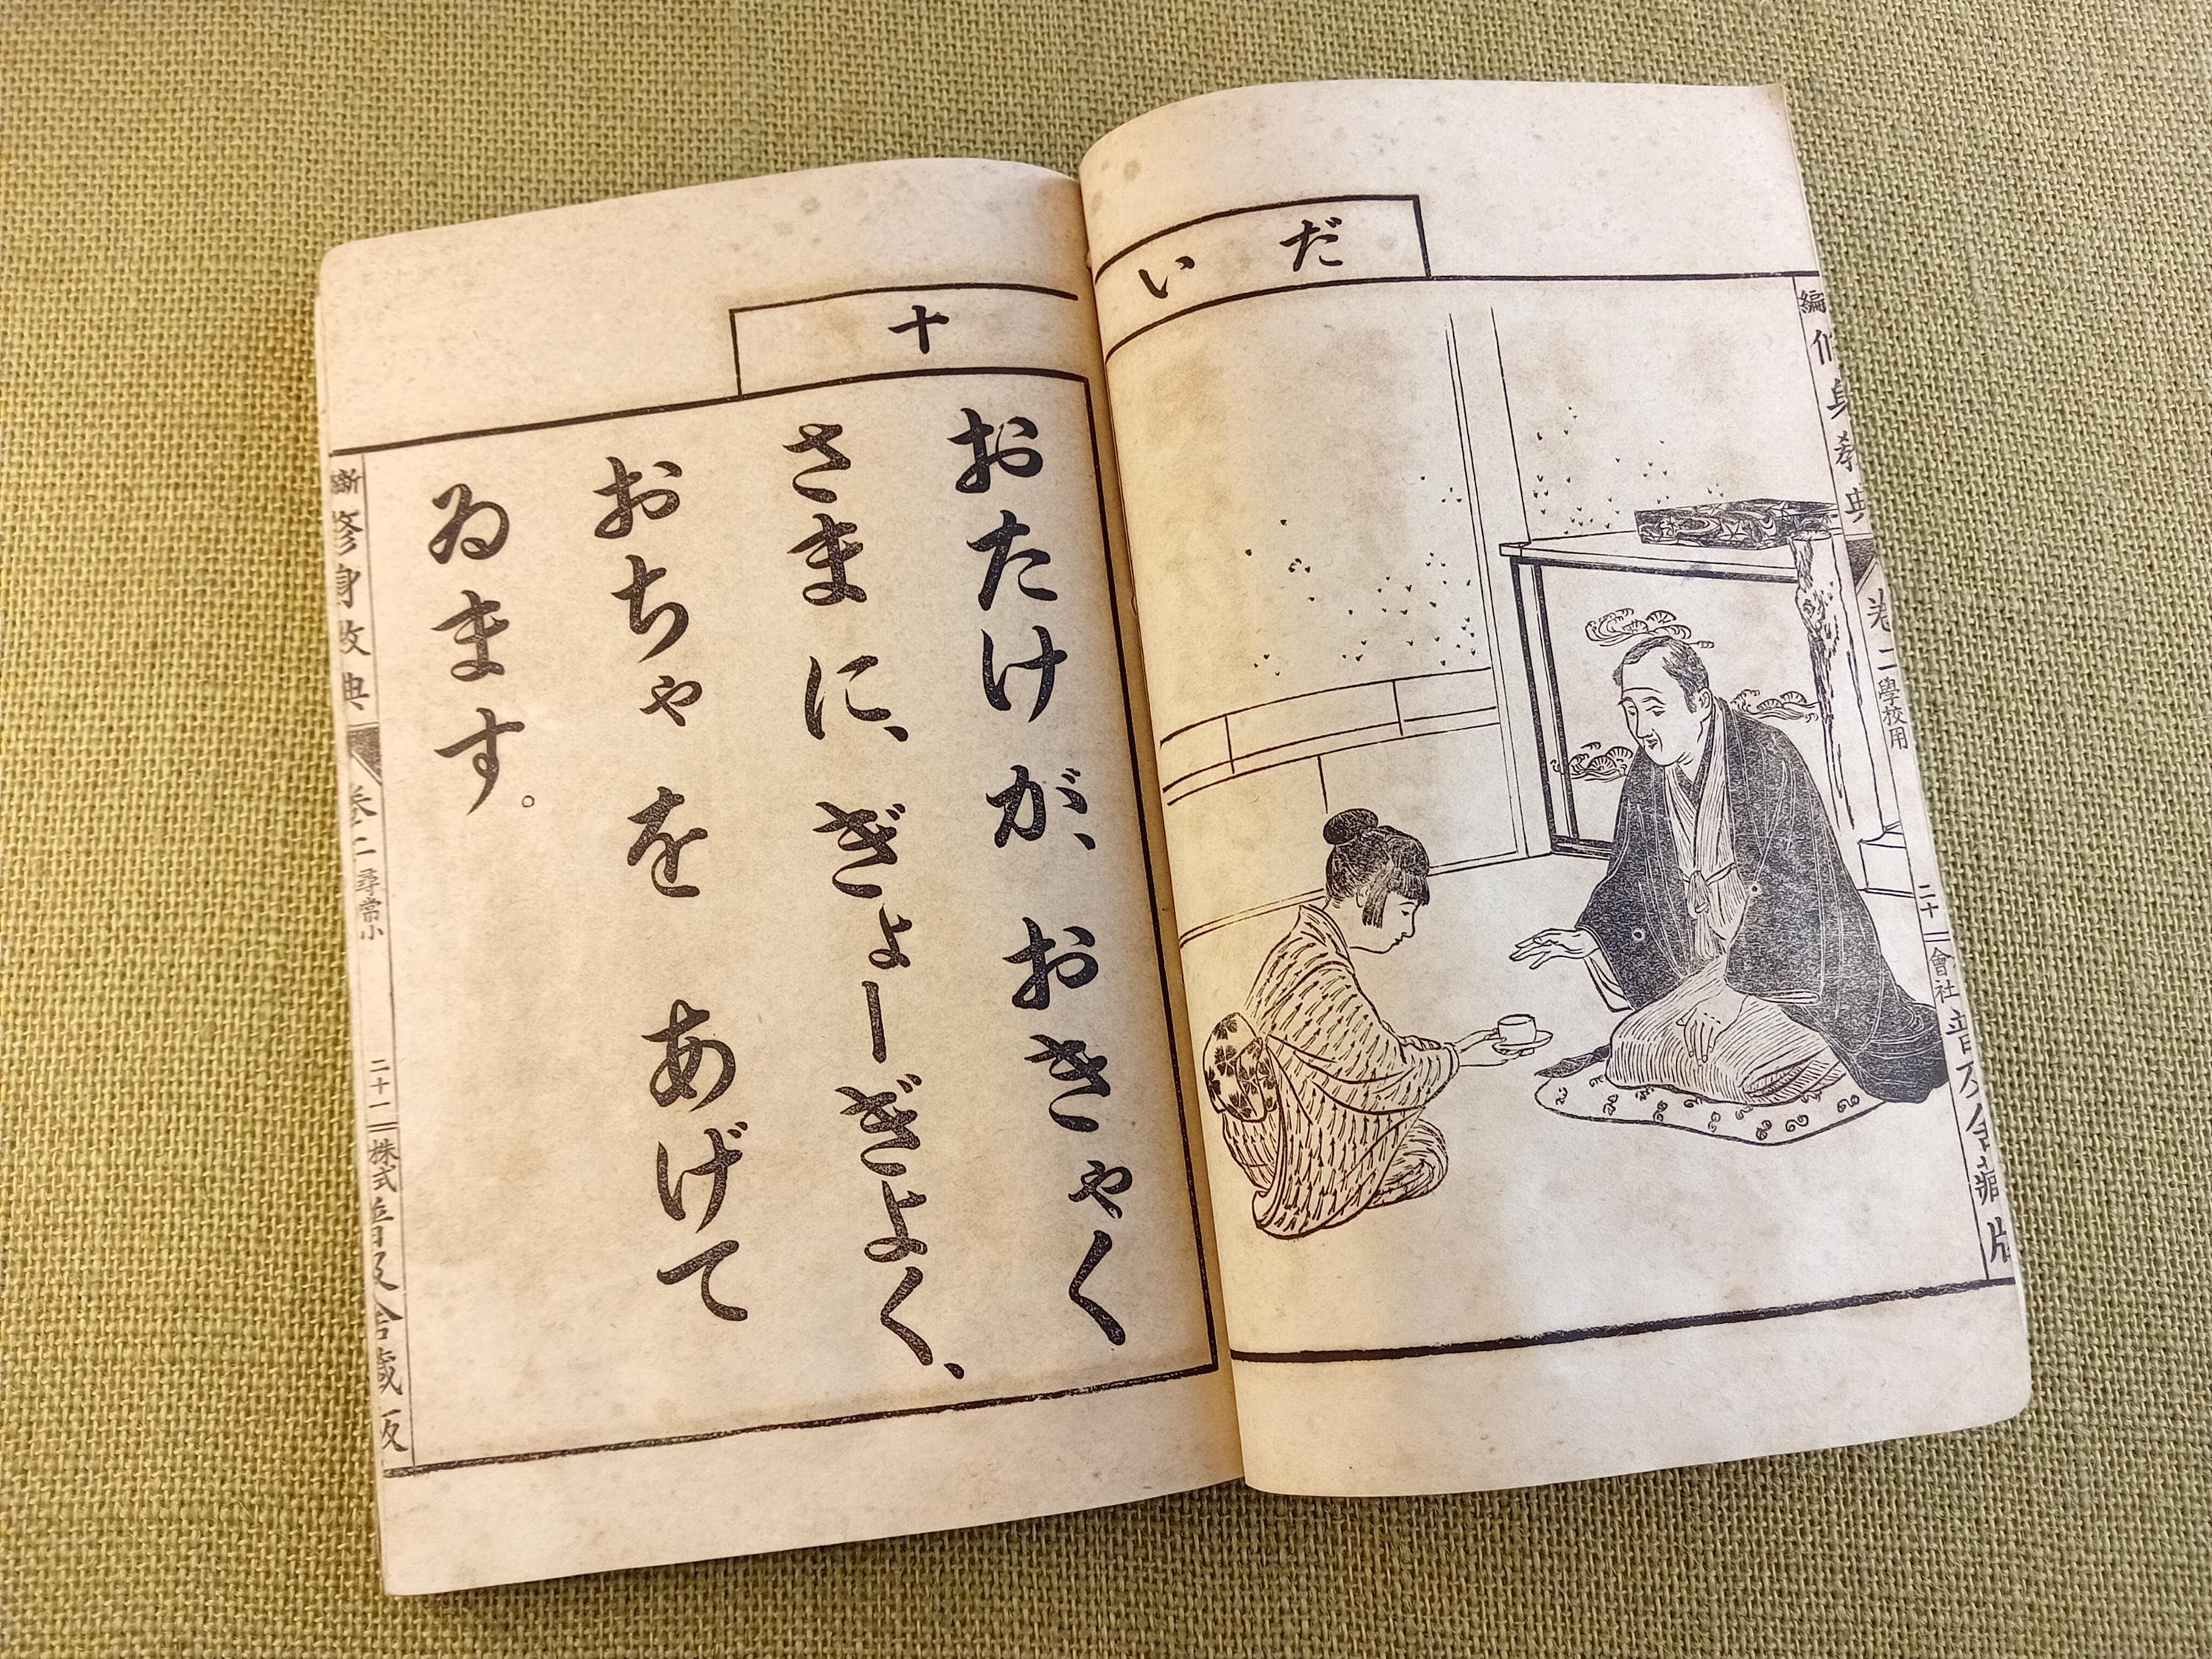 だい
編
修身教典
卷二
學校用
二十
會社
普及舍藏版
十
おたけが、おきゃく
さまに、ぎょーぎよく、
おちゃをあげて
ゐます。
新
修身教典
卷二
尋常小
二十一
株式
普及舍藏版